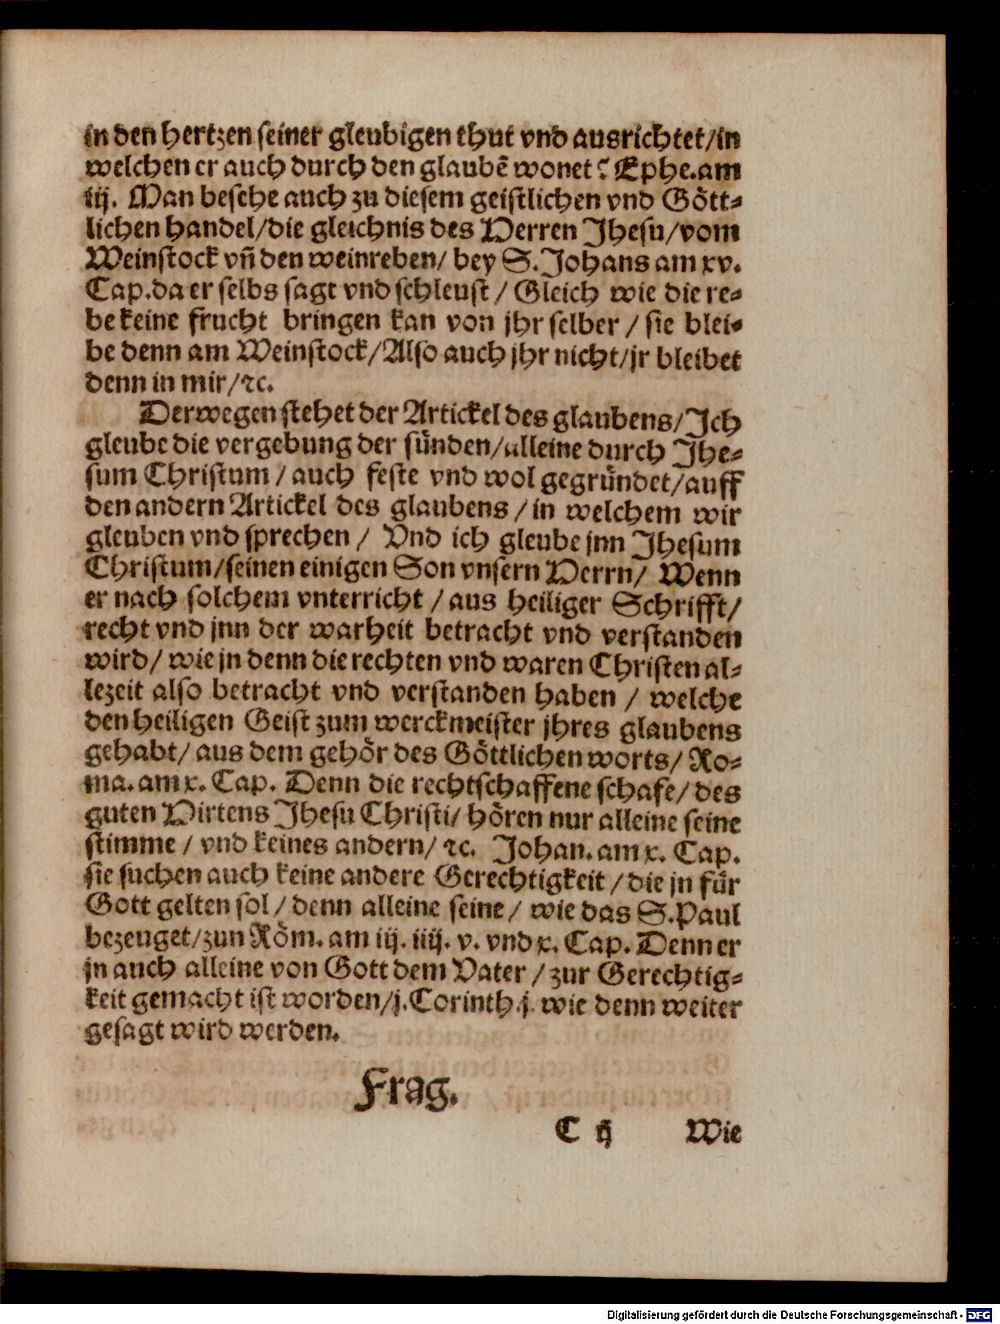 in den hertzen seiner gleubigen thut vnd ausrichtet/in
welchen er auch durch den glaubē wonet? Ephe.am
iij. Man besehe auch zu diesem geistlichen vnd Gött-
lichen handel/die gleichnis des Herren Jhesu/vom
Weinstock vn̄ den weinreben/ bey S.Johans am xv.
Cap.da er selbs sagt vnd schleust / Gleich wie die re-
be keine frucht bringen kan von jhr selber / sie blei-
be denn am Weinstock/Also auch jhr nicht/jr bleibet
denn in mir/ꝛc.
Derwegen stehet der Artickel des glaubens/Ich
gleube die vergebung der sünden/alleine durch Jhe-
sum Christum / auch feste vnd wol gegründet/auff
den andern Artickel des glaubens / in welchem wir
gleuben vnd sprechen / Vnd ich gleube jnn Jhesum
Christum/seinen einigen Son vnsern Herrn/ Wenn
er nach solchem vnterricht / aus heiliger Schrifft/
recht vnd jnn der warheit betracht vnd verstanden
wird/ wie jn denn die rechten vnd waren Christen al-
lezeit also betracht vnd verstanden haben / welche
den heiligen Geist zum werckmeister jhres glaubens
gehabt/ aus dem gehör des Göttlichen worts/ Ro-
ma. am x. Cap. Denn die rechtschaffene schafe/ des
guten Hirtens Jhesu Christi/ hören nur alleine seine
stimme / vnd keines andern/ ꝛc. Johan. am x. Cap.
sie suchen auch keine andere Gerechtigkeit / die jn für
Gott gelten sol / denn alleine seine / wie das S.Paul
bezeuget/zun Röm. am iij. iiij. v. vnd x. Cap. Denn er
jn auch alleine von Gott dem Vater / zur Gerechtig-
keit gemacht ist worden/j.Corinth.j. wie denn weiter
gesagt wird werden.
Frag.
C ij Wie
Digitalisierung gefördert durch die Deutsche Forschungsgemeinschaft - DFG